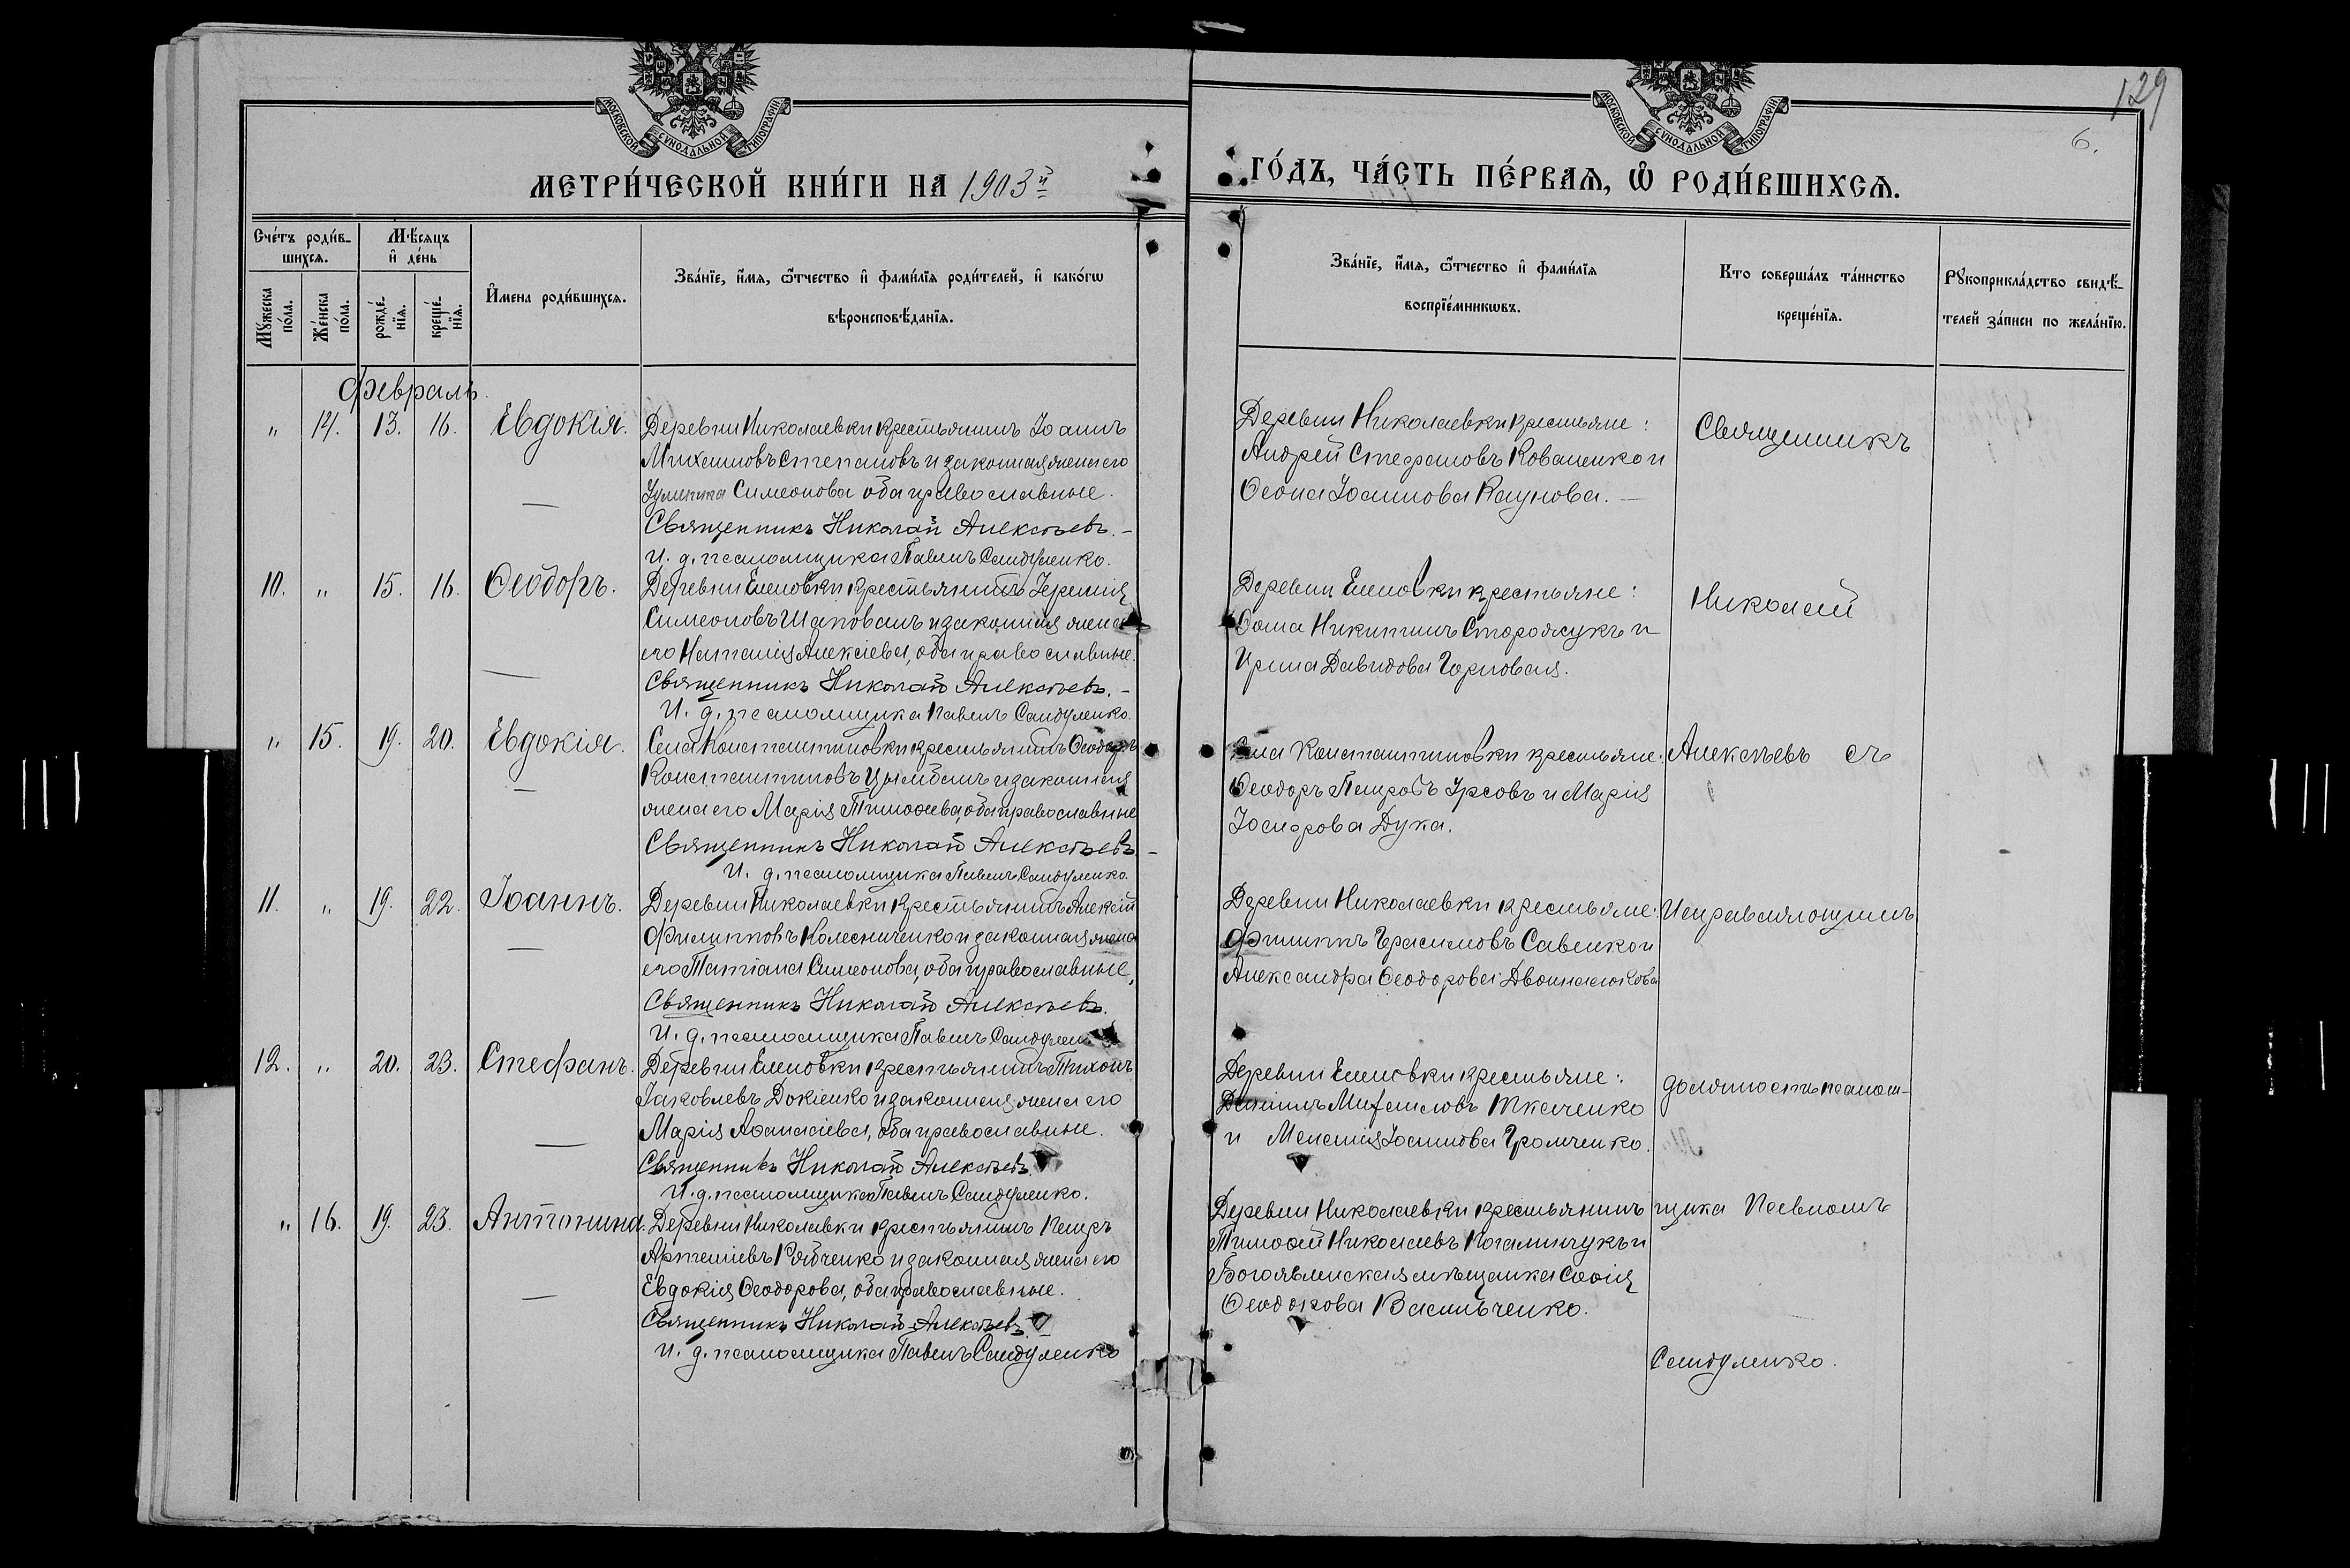 129
6.
МОСКОВСКОЙ СѴНОДАЛЬНОЙ ТИПОГРАФІИ
МОСКОВСКОЙ СѴНОДАЛЬНОЙ ТИПОГРАФІИ
МЕТРИ́ЧЕСКОЙ КНИ́ГИ НА 1903й
ГО́ДЪ, ЧА́СТЬ ПЕ́РВАЯ, Ѡ҆ РОДИ́ВШИХСЯ.
Сче́тъ роди́в-
шихся.
Мѣ́сяцъ
и҆ де́нь
Мꙋжеска по́ла.
Же́нска по́ла.
рожде́-
нїя.
креще́-
нїя.
И҆мена роди́вшихся.
Зва́нїе, и҆́мя, ѻ҆́тчество и҆ фами́лїя роди́телей, и҆ како́гѡ
вѣроисповѣ́данїя.
Зва́нїе, и҆́мя, ѻ҆́тчество и҆ фами́лїя
воспрїе́мникѡвъ.
Кто соверша́лъ та́инство
креще́нїя.
Рꙋкоприкла́дство свидѣ́-
телей за́писи по жела́нїю.
Февраль.
" 14. 13. 16. Евдокія.
Деревни Николаевки крестьянинъ Іоаннъ
Михаиловъ Степановъ и законная жена его
Іулитта Симеонова оба православные.
Священникъ Николай Алексѣевъ. -
И. д. псаломщика Павелъ Сандуленко.
Деревни Николаевки крестьяне:
Андрей Стефановъ Коваленко и
Ѳеона Іоаннова Каунова. -
10. " 15. 16. Ѳеодоръ.
Деревни Еленовки крестьянинъ Іеремія
Симеоновъ Шаповалъ и законная жена
его Наталія Алексіева, оба православные.
Священникъ Николай Алексѣевъ. -
И. д. псаломщика Павелъ Сандуленко.
Деревни Еленовки крестьяне:
Ѳома Никитинъ Сторожукъ и
Ирина Давидова Горновая.
" 15. 19. 20. Евдокія.
Села Константиновки крестьянинъ Ѳеодоръ
Константиновъ Цымбалъ и законная
жена его Марія Тимоѳеева, оба православные
Священникъ Николай Алексѣевъ. -
И. д. псаломщика Павелъ Сандуленко.
Села Константиновки крестьяне:
Ѳеодоръ Петровъ Урсовъ и Марія
Іосифова Дука.
11. " 19. 22. Іоаннъ.
Деревни Николаевки крестьянинъ Алексій
Филипповъ Колесниченко и законная жена
его Татіана Симеонова, оба православные,
Священникъ Николай Алексѣевъ.
И. д. псаломщика Павелъ Сандулен
Деревни Николаевки крестьяне:
Филиппъ Герасимовъ Савенко и
Александра Ѳеодорова
12. " 20. 23. Стефанъ.
Деревни Еленовки крестьянинъ Тихонъ
Іаковлевъ Докіенко и законная жена его
Марія Аѳанасіева, оба православные.
Священникъ Николай Алексѣевъ.
И. д. псаломщика Павелъ Сандуленко.
Деревни Еленовки крестьяне:
Даніилъ Михаиловъ Ткаченко
и Меланія Іоаннова Громченко.
" 16. 19. 23. Антонина.
Деревни Николаевки крестьянинъ Петръ
Артеміевъ Рябченко и законная жена его
Евдокія Ѳеодорова, оба православные.
Священникъ Николай Алексѣевъ
И. д. псаломщика Павелъ Сандуленко
Деревни Николаевки крестьянинъ
Тимоѳей Николаевъ и
Богоявленская мѣщанка Софія
Ѳеодорова Васильченко.
Священникъ
Николай
Алексѣевъ съ
Исправляющимъ
должность псалом-
щика Павломъ
Сандуленко.